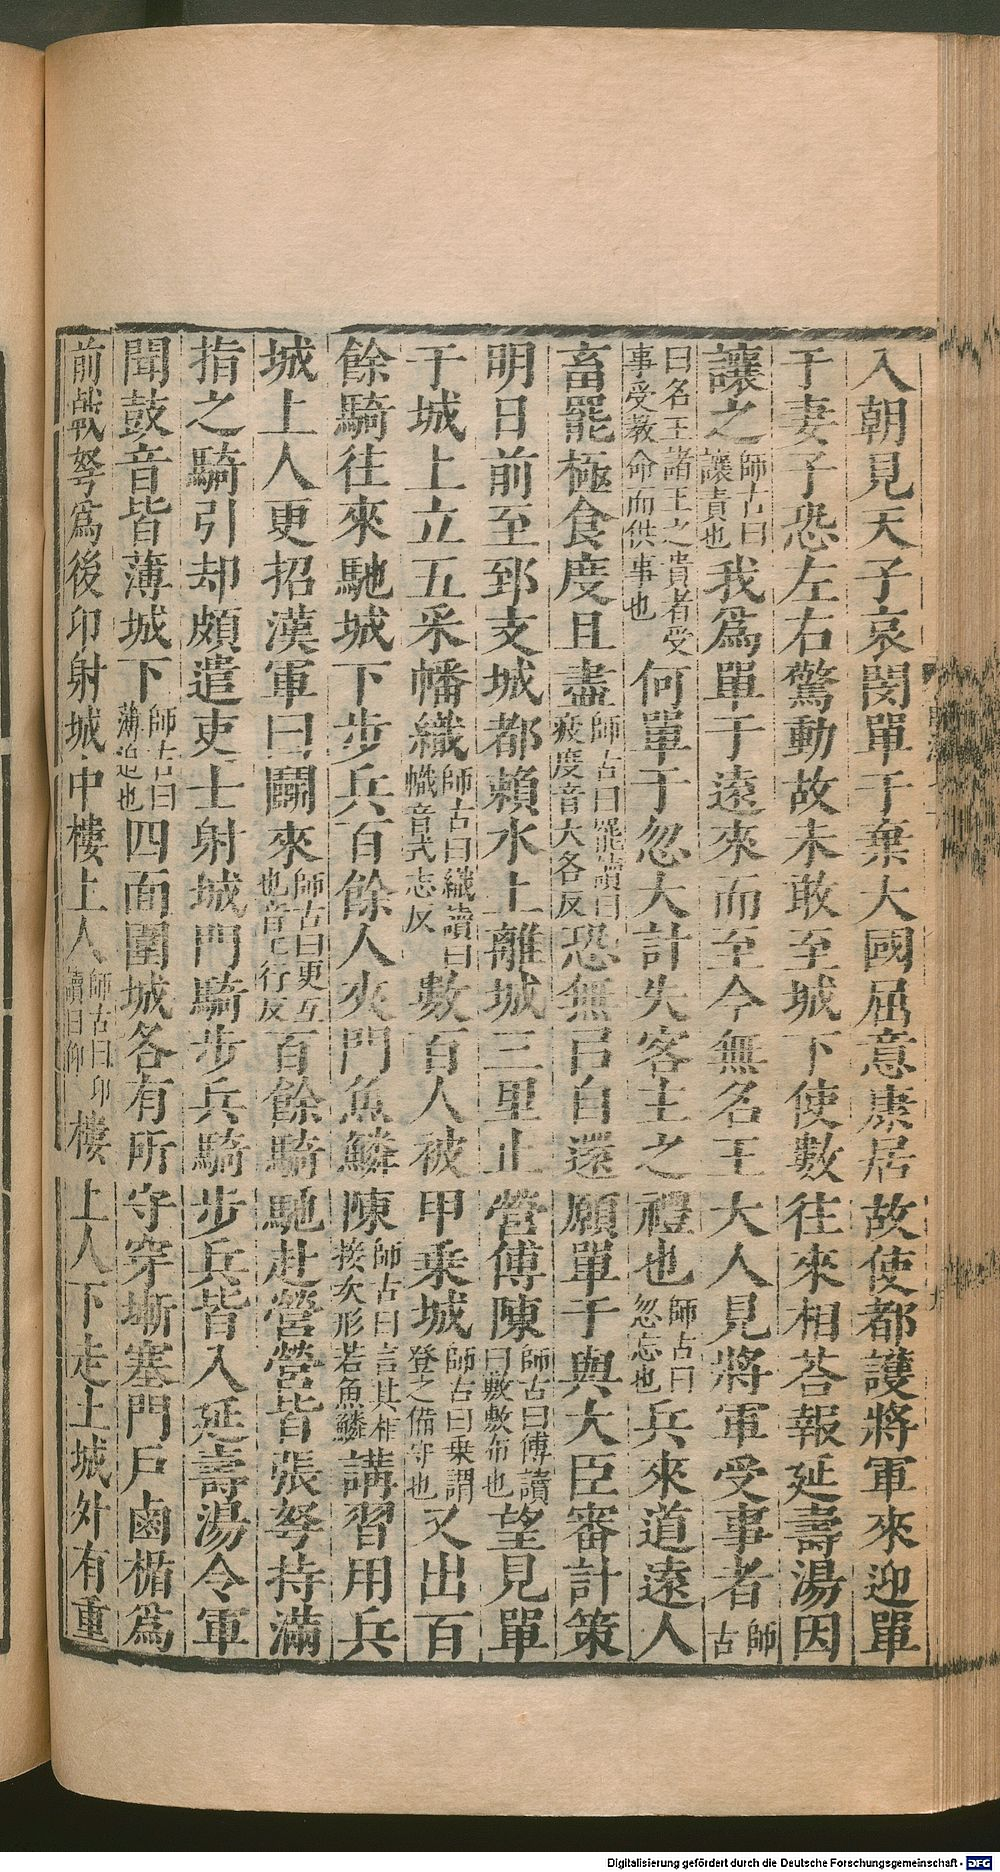 入朝見天子哀閔單于棄大國屈意康居故使都護將軍來迎單
于妻子恐左右驚動故未敢至城下使數往來相荅報延壽湯因
讓之師古曰讓責也我爲單于遠來而至今無名王大人見將軍受事者師古
曰名王諸王之貴者受事受敎命而供事也何單于忽大計失客主之禮也師古曰忽忘也兵來道遠人
畜罷極食度且盡師古曰罷讀曰疲度音大各反恐無㠯自還願單于與大臣審計策
明日前至郅支城都賴水上離城三里止營傅陳師古曰傅讀曰敷敷布也望見單
于城上立五采幡織師古曰織讀曰幟音式志反數百人被甲乗城師古曰乗謂登之備守也又出百
餘騎徃來馳城下步兵百餘人夾門魚鱗陳師古曰言其相接次形若魚鱗講習用兵
城上人更招漢軍曰鬭來師古曰更互也音工行反百餘騎馳赴營營皆張弩持滿
指之騎引却頗遣吏士射城門騎步兵騎步兵皆入延壽湯令軍
聞鼓音皆薄城下師古曰薄迫也四面圍城各有所守穿塹塞門戶鹵楯爲
前戟弩爲後卬射城中樓上人師古曰卬讀曰仰樓上人下走土城外有重
Digitalisierung gefördert durch die Deutsche Forschungsgemeinschaft - DFG